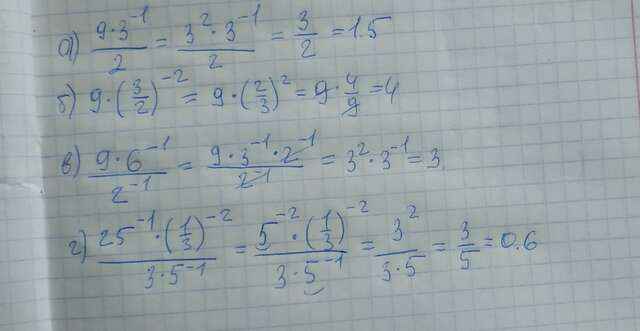 а) (9·3⁻¹)/2 = (3²·3⁻¹)/2 = 3/2 = 1.5
б) 9·(3/2)⁻² = 9·(2/3)² = 9·4/9 = 4
в) (9·6⁻¹)/2⁻¹ = (9·3⁻¹·2⁻¹)/2⁻¹ = 3²·3⁻¹ = 3
г) (25⁻¹·(1/3)⁻²)/(3·5⁻¹) = (5⁻²·(1/3)⁻²)/(3·5⁻¹) = 3²/(3·5) = 3/5 = 0.6